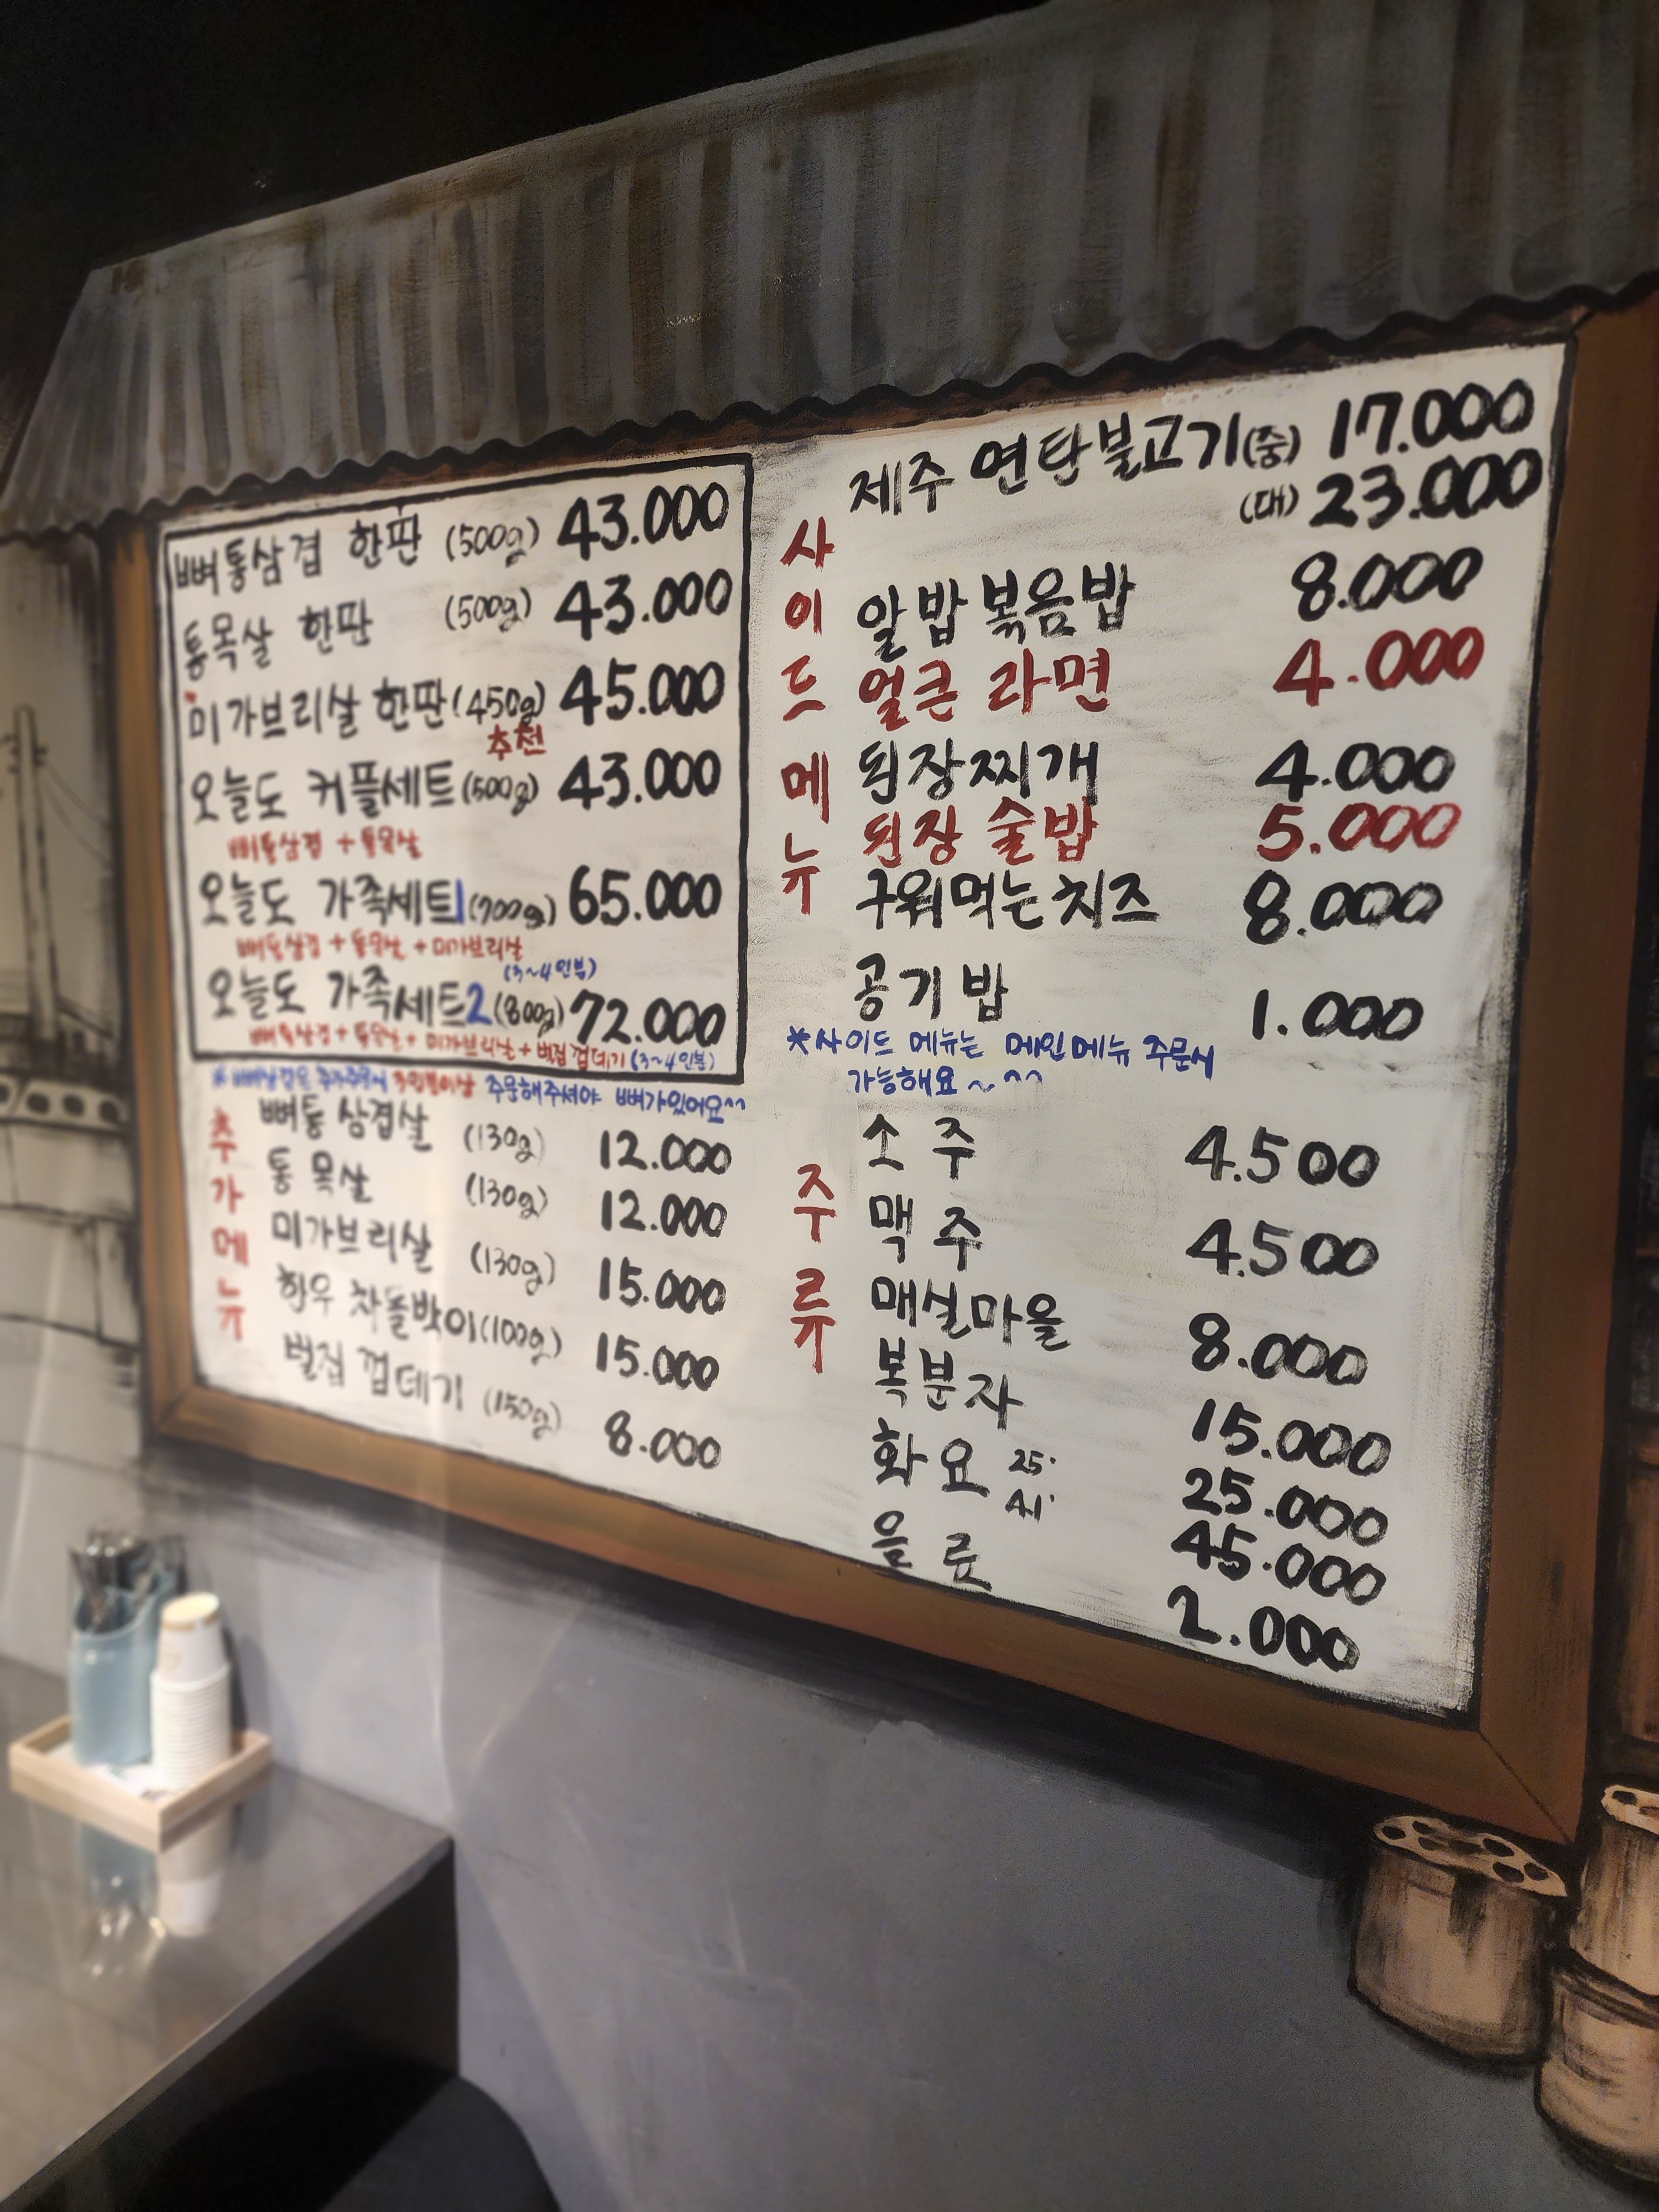 뼈통삼겹 한판 (500g) 43.000
통목살 한판 (500g) 43.000
미가브리살 한판 (450g) 45.000
추천
오늘도 커플세트 (500g) 43.000
뼈통삼겹 + 통목살
오늘도 가족세트1 (700g) 65.000
뼈통삼겹 + 통목살 + 미가브리살
(3~4인분)
오늘도 가족세트2 (800g) 72.000
뼈통삼겹 + 통목살 + 미가브리살 + 벌집껍데기 (3~4인분)
주문해주셔야 뼈가있어요^^
추가메뉴
뼈통 삼겹살 (130g) 12.000
통 목살 (130g) 12.000
미가브리살 (130g) 15.000
한우 차돌박이 (100g) 15.000
벌집 껍데기 (150g) 8.000
사이드메뉴
제주 연탄불고기(중) 17.000
(대) 23.000
알밥볶음밥 8.000
얼큰 라면 4.000
된장찌개 4.000
된장 술밥 5.000
구워먹는치즈 8.000
공기밥 1.000
*사이드 메뉴는 메인메뉴 주문시
가능해요~^^
주류
소주 4.500
맥주 4.500
매실마을 8.000
복분자 15.000
화요 25° 25.000
41° 45.000
음료 2.000